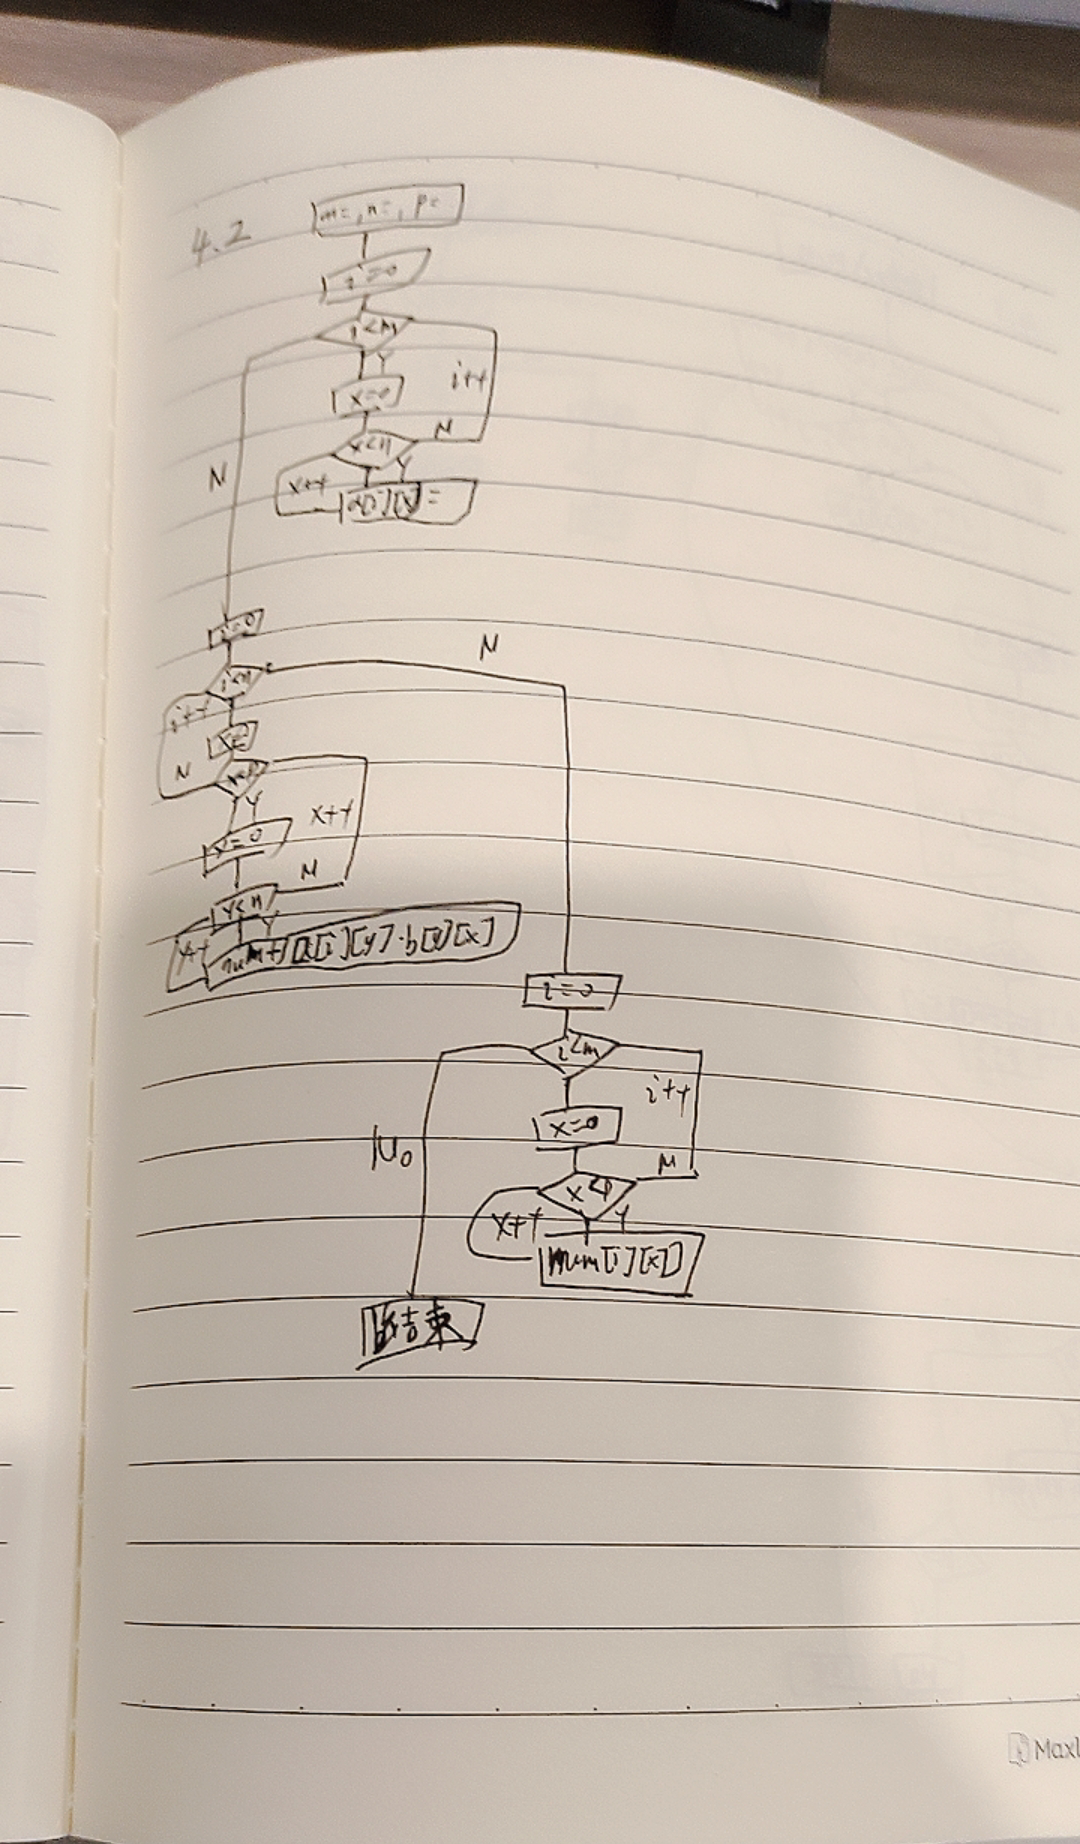 4.2
m= , n= , p=
i=0
i<m
Y
i++
x=0
N
x<n
Y
x++
a[i][x]=
N
i=0
N
i<m
i++
N
Y
x++
y=0
N
y<n
Y
y++
num+=a[i][y]·b[y][x]
i=0
i<m
i++
x=0
No
N
x<p
x++
Y
num[i][x]
结束
Maxl